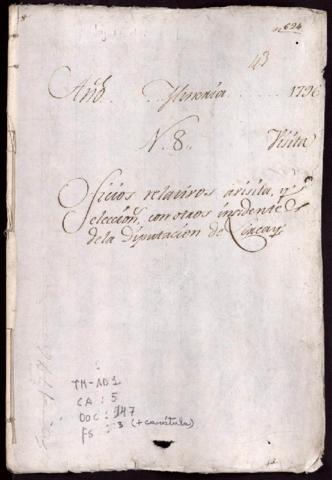 nº 624
43
Año. Mineria 1796
N. 8. Visita
Oficios relativos a visita, y
eleccion, con otros insidentes
de la Diputacion de
TM-AD1
CA : 5
DOC : 147
FS : 3 (+ carátula)